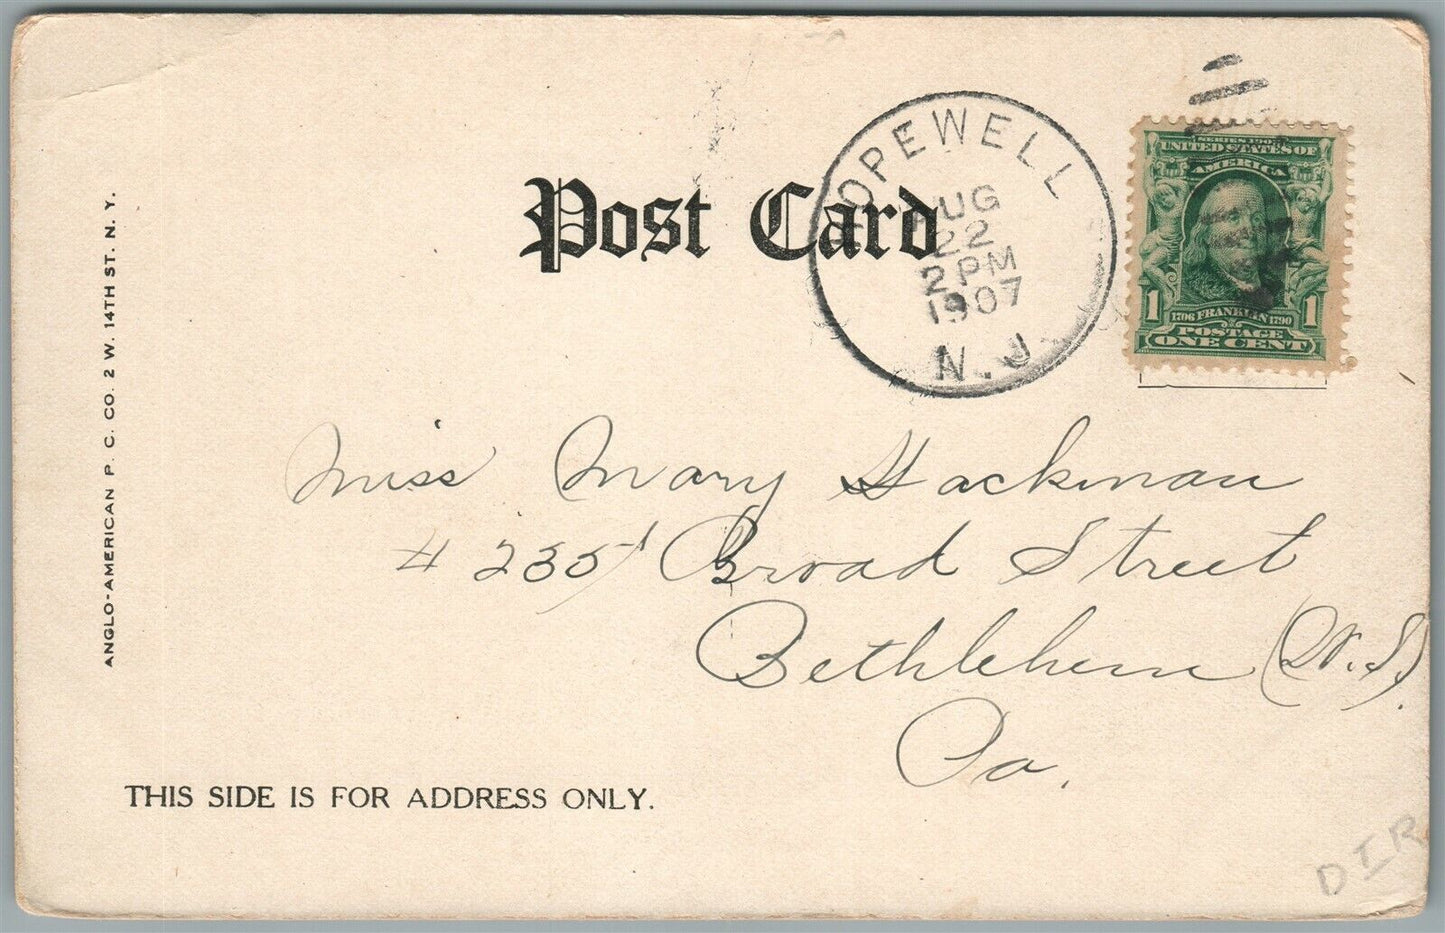 Post Card
HOPEWELL
AUG
22
2 PM
1907
N. J.
SERIES 1902
UNITED STATES OF
AMERICA
1 1
1706 FRANKLIN 1790
POSTAGE
ONE CENT
ANGLO-AMERICAN P. C. CO. 2 W. 14TH ST. N. Y.
Miss Mary Hackman
# 235 Broad Street
Bethlehem (W. S.)
Pa.
THIS SIDE IS FOR ADDRESS ONLY.
DIR